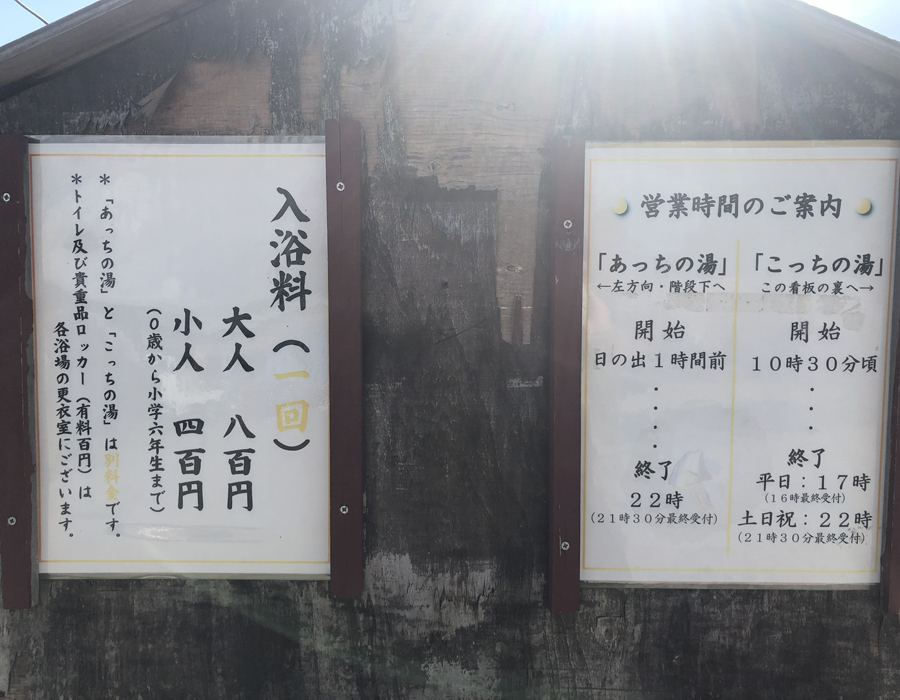 入浴料（一回）
大人　八百円
小人　四百円
（０歳から小学六年生まで）
＊「あっちの湯」と「こっちの湯」は別料金です。
＊トイレ及び貴重品ロッカー（有料百円）は
各浴場の更衣室にございます。
営業時間のご案内
「あっちの湯」
←左方向・階段下へ
開始
日の出１時間前
・
・
・
・
終了
２２時
（２１時３０分最終受付）
「こっちの湯」
この看板の裏へ→
開始
１０時３０分頃
・
・
・
・
終了
平日：１７時
（１６時最終受付）
土日祝：２２時
（２１時３０分最終受付）